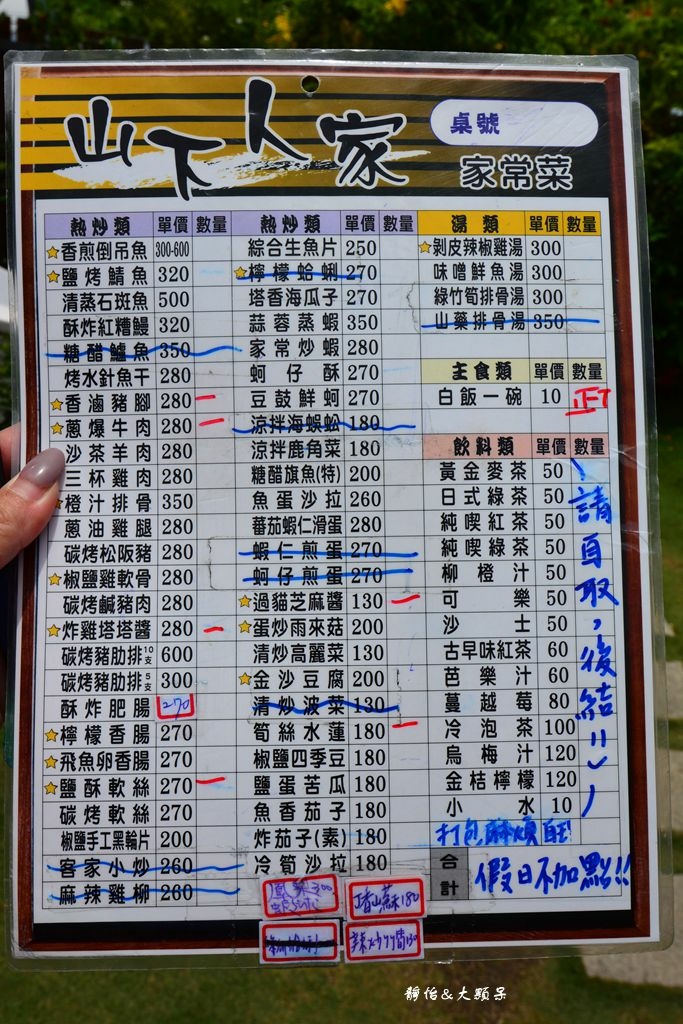 山下人家
桌號
家常菜
熱炒類 單價 數量
香煎倒吊魚 300-600
鹽烤鯖魚 320
清蒸石斑魚 500
酥炸紅糟鰻 320
糖醋鱸魚 350
烤水針魚干 280
香滷豬腳 280
蔥爆牛肉 280
沙茶羊肉 280
三杯雞肉 280
橙汁排骨 350
蔥油雞腿 280
碳烤松阪豬 280
椒鹽雞軟骨 280
碳烤鹹豬肉 280
炸雞塔塔醬 280
碳烤豬肋排10支 600
碳烤豬肋排5支 300
酥炸肥腸 270
檸檬香腸 270
飛魚卵香腸 270
鹽酥軟絲 270
碳烤軟絲 270
椒鹽手工黑輪片 200
客家小炒 260
麻辣雞柳 260
熱炒類 單價 數量
綜合生魚片 250
檸檬蛤蜊 270
塔香海瓜子 270
蒜蓉蒸蝦 350
家常炒蝦 280
蚵仔酥 270
豆鼓鮮蚵 270
涼拌海蜈蚣 180
涼拌鹿角菜 180
糖醋旗魚(特) 200
魚蛋沙拉 260
蕃茄蝦仁滑蛋 280
蝦仁煎蛋 270
蚵仔煎蛋 270
過貓芝麻醬 130
蛋炒雨來菇 200
清炒高麗菜 130
金沙豆腐 200
清炒波菜 130
筍絲水蓮 180
椒鹽四季豆 180
鹽蛋苦瓜 180
魚香茄子 180
炸茄子(素) 180
冷筍沙拉 180
湯類 單價 數量
剝皮辣椒雞湯 300
味噌鮮魚湯 300
綠竹筍排骨湯 300
山藥排骨湯 350
主食類 單價 數量
白飯一碗 10
飲料類 單價 數量
黃金麥茶 50
日式綠茶 50
純喫紅茶 50
純喫綠茶 50
柳橙汁 50
可樂 50
沙士 50
古早味紅茶 60
芭樂汁 60
蔓越莓 80
冷泡茶 100
烏梅汁 120
金桔檸檬 120
小水 10
請自取,後結!!
合計
假日不加點!!
靜怡&大顆呆